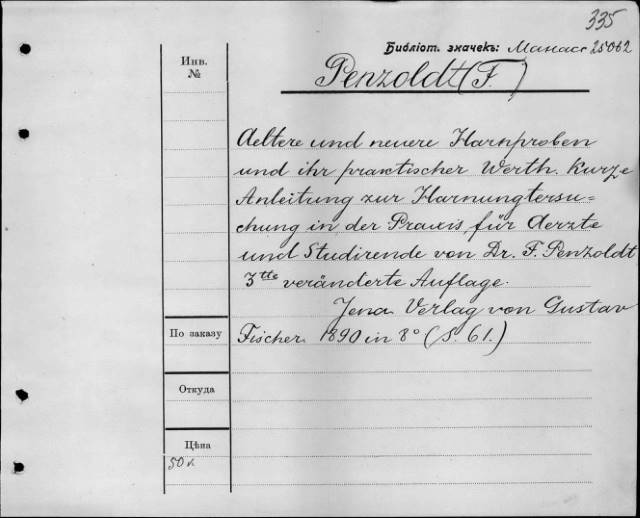 335
Библіот. значекъ: Манасс 25062
Инв.
№
Penzoldt (F.)
Aeltere und neuere Harnproben
und ihr praktischer Werth. Kurze
Anleitung zur Harnungtersu=
chung in der Praxis für Aerzte
und Studirende von Dr. F. Penzoldt
3tte veränderte Auflage.
Jena Verlag von Gustav
По заказу
Fischer 1890 in 8° (S. 61.)
Откуда
Цѣна
50 к.